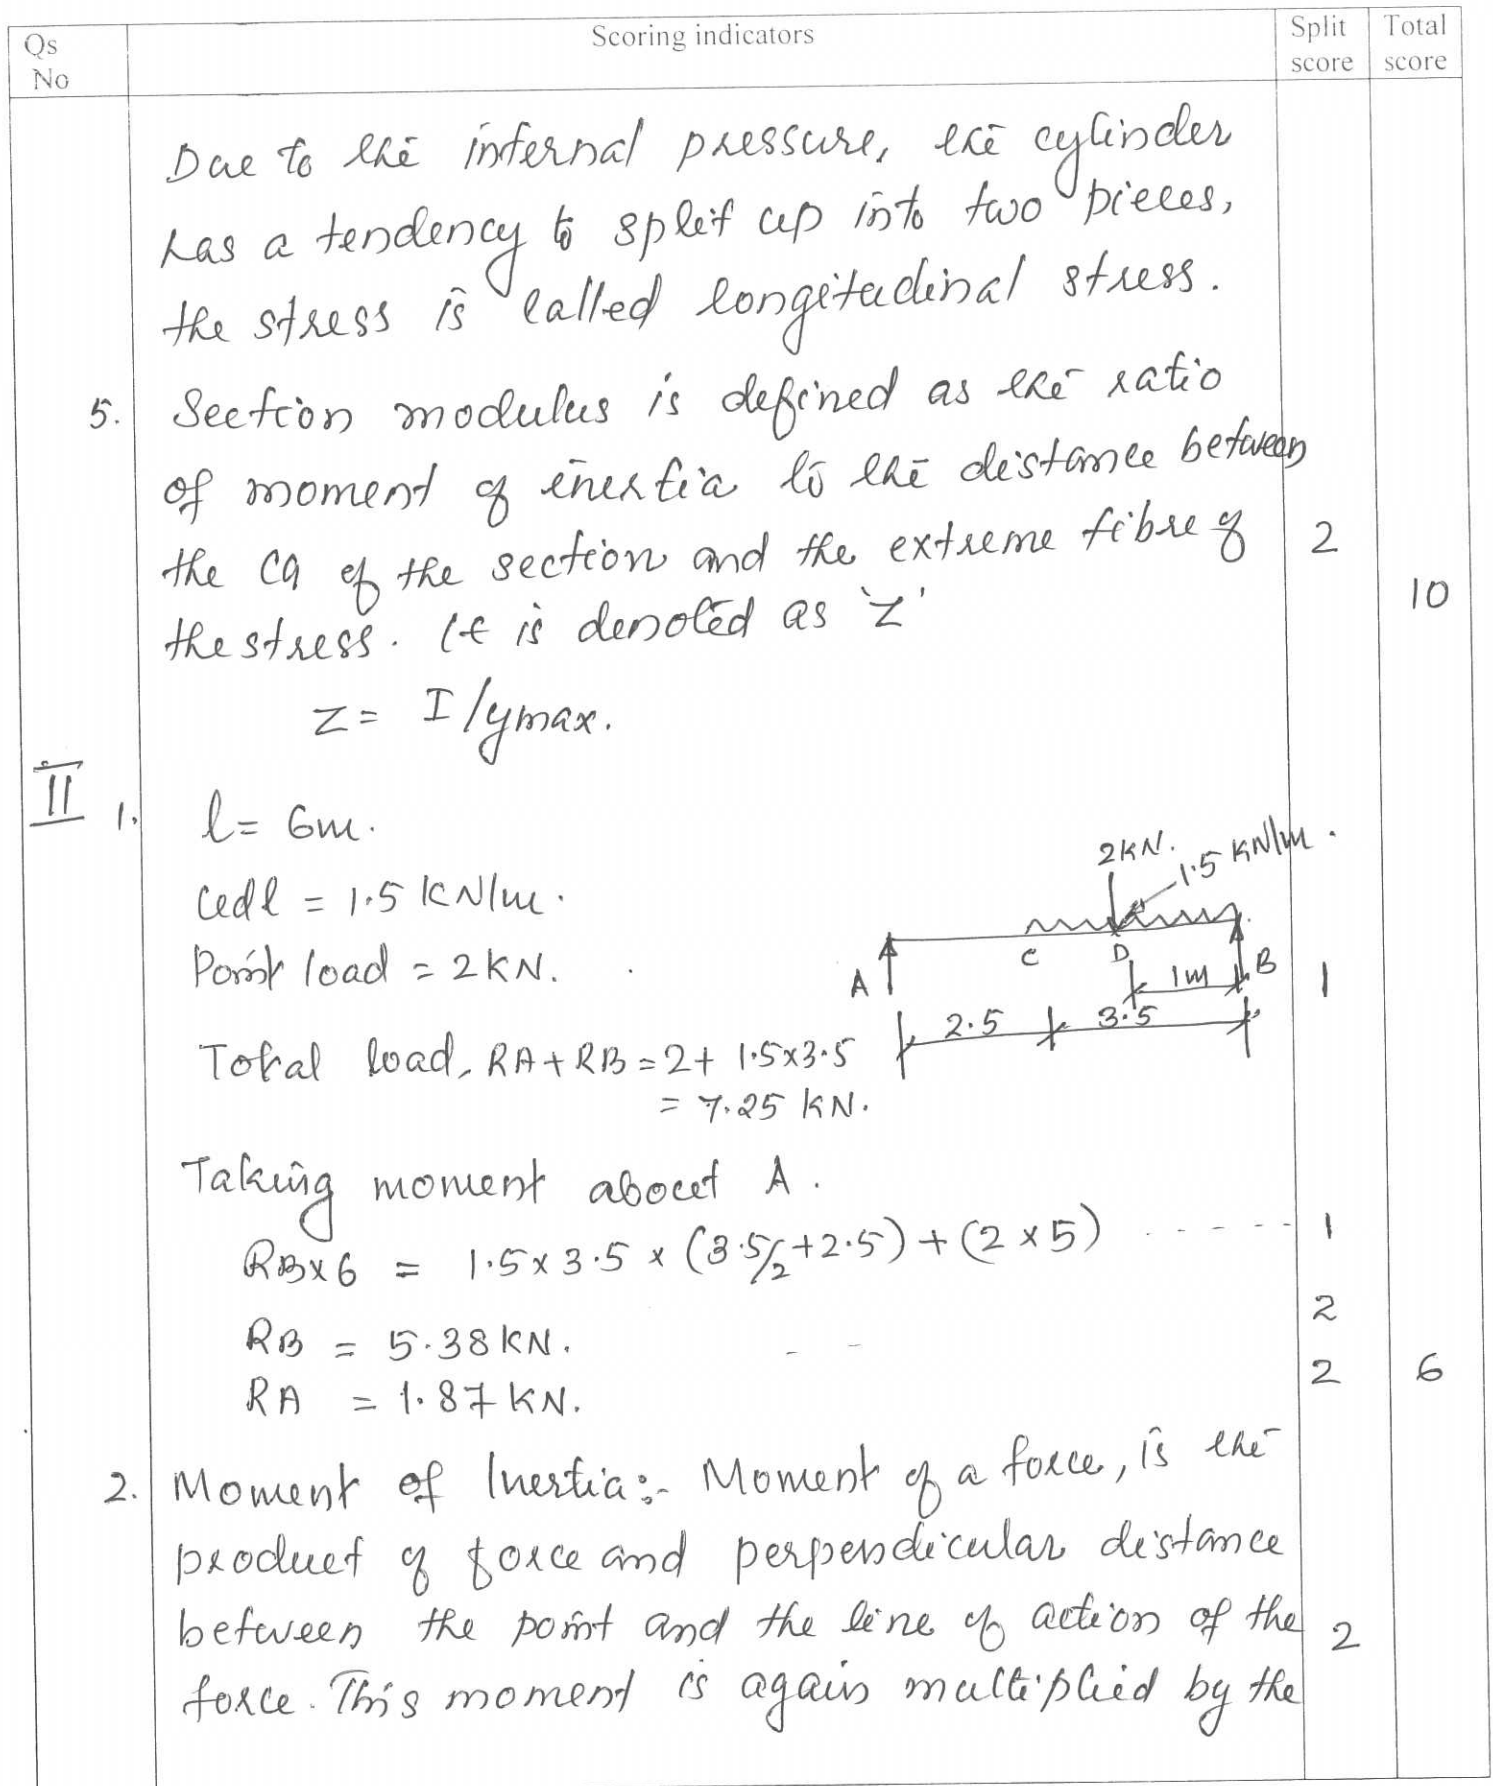 Qs No
Scoring indicators
Split score
Total score
Due to the internal pressure, the cylinder
has a tendency to split up into two pieces,
the stress is called longitudinal stress.
5. Section modulus is defined as the ratio
of moment of inertia to the distance between
the CG of the section and the extreme fibre of 2
10
the stress. It is denoted as 'Z'
Z = I/ymax.
II 1. l = 6m.
2KN. 1.5 KN/m.
udl = 1.5 KN/m.
Point load = 2KN.
A C D B
1m 1
2.5 3.5
Total load, RA + RB = 2 + 1.5x3.5
= 7.25 KN.
Taking moment about A.
RB x 6 = 1.5 x 3.5 x (3.5/2 + 2.5) + (2 x 5) ----- 1
2
RB = 5.38 KN. - -
2 6
RA = 1.87 KN.
2. Moment of Inertia:- Moment of a force, is the
product of force and perpendicular distance
between the point and the line of action of the 2
force. This moment is again multiplied by the